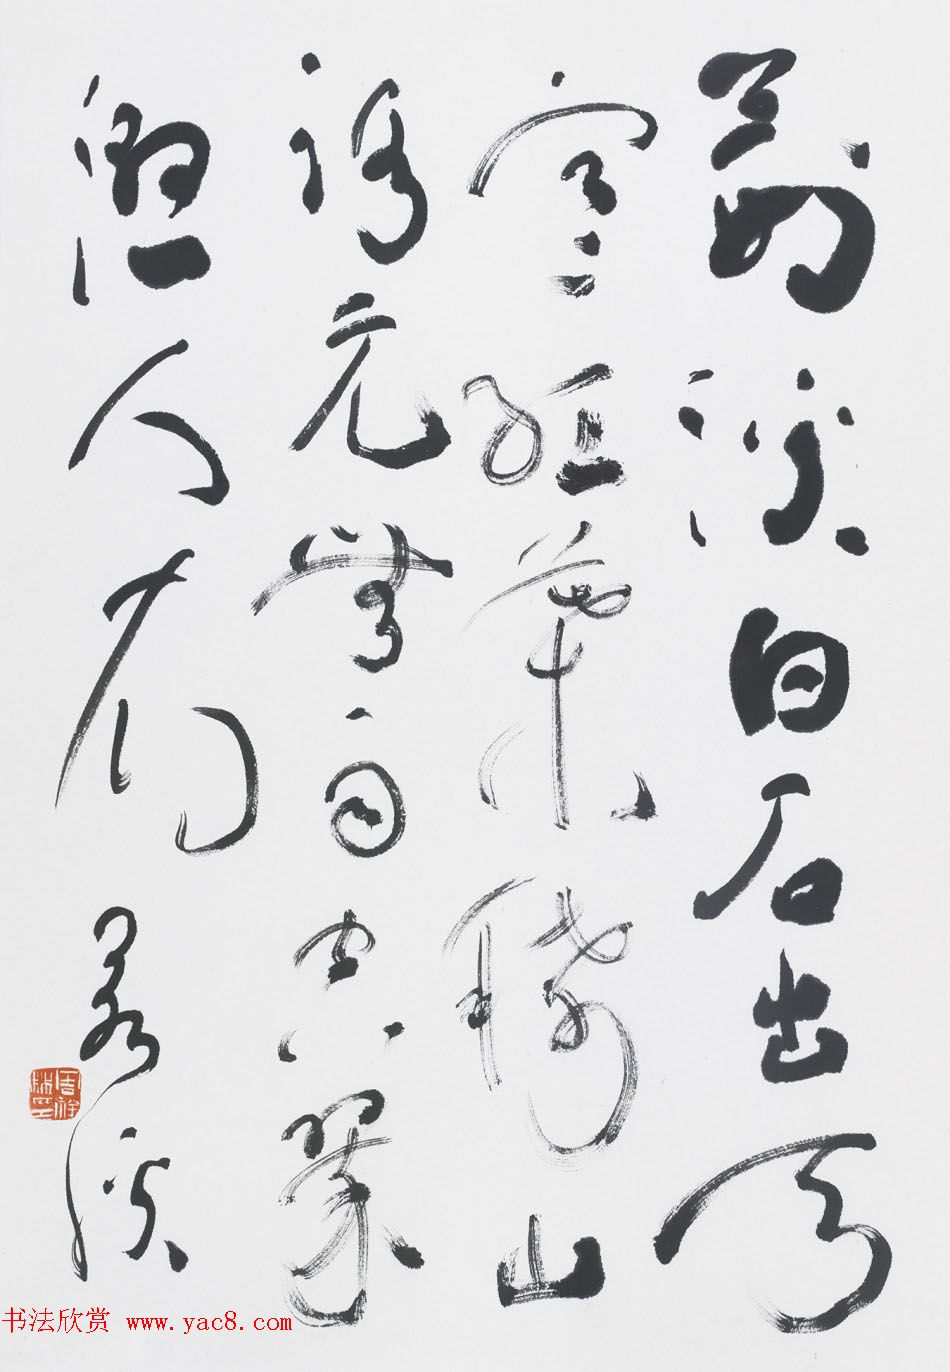 荆溪白石出天
寒紅葉稀山
路元無雨空翠
溼人衣
溪
周祥林
书法欣赏 www.yac8.com